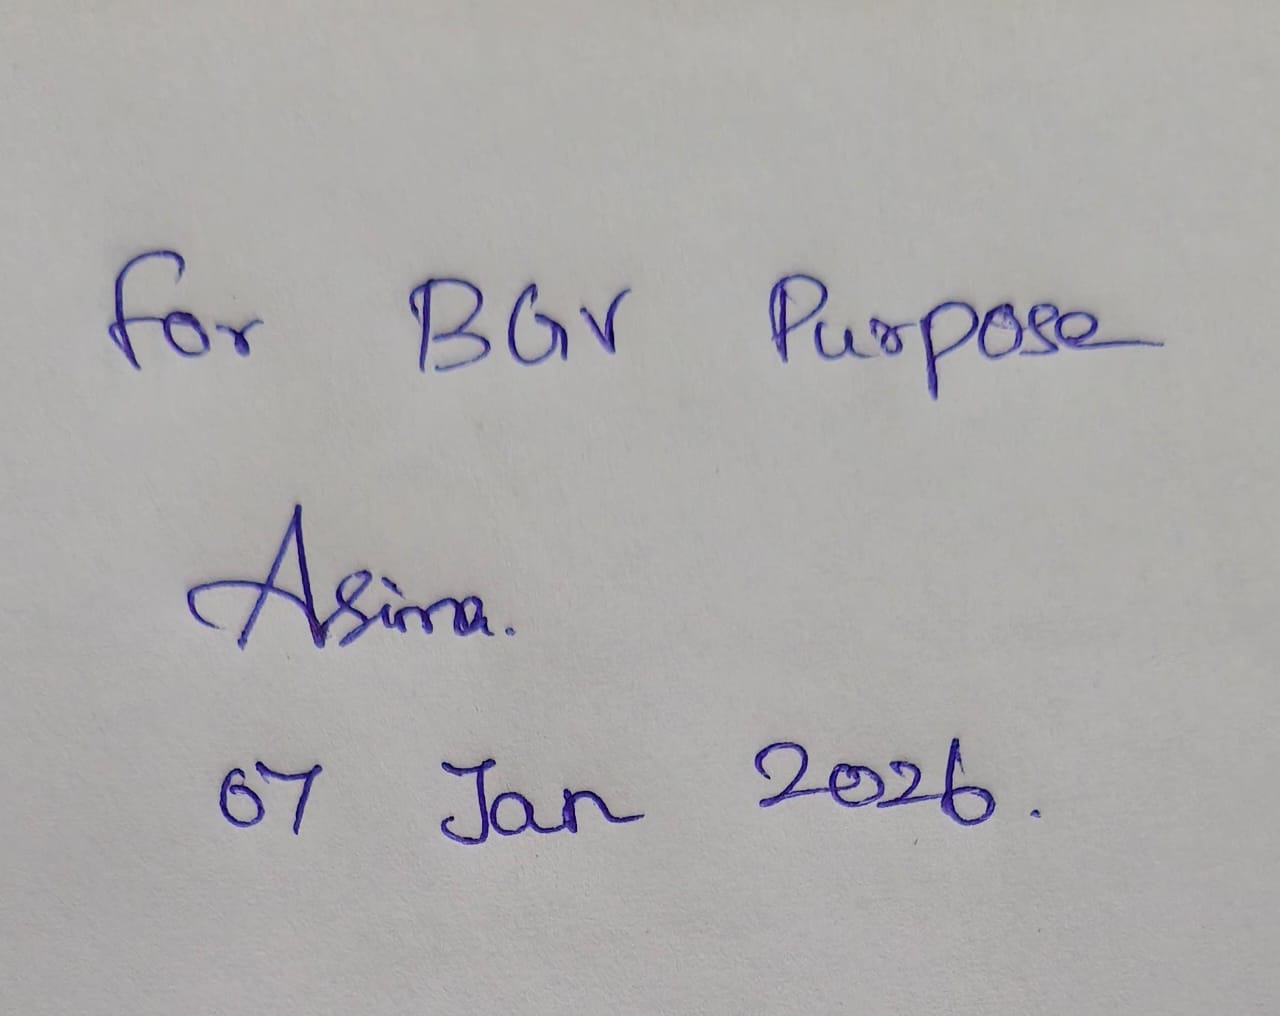 For BGV Purpose
Asima.
07 Jan 2026.